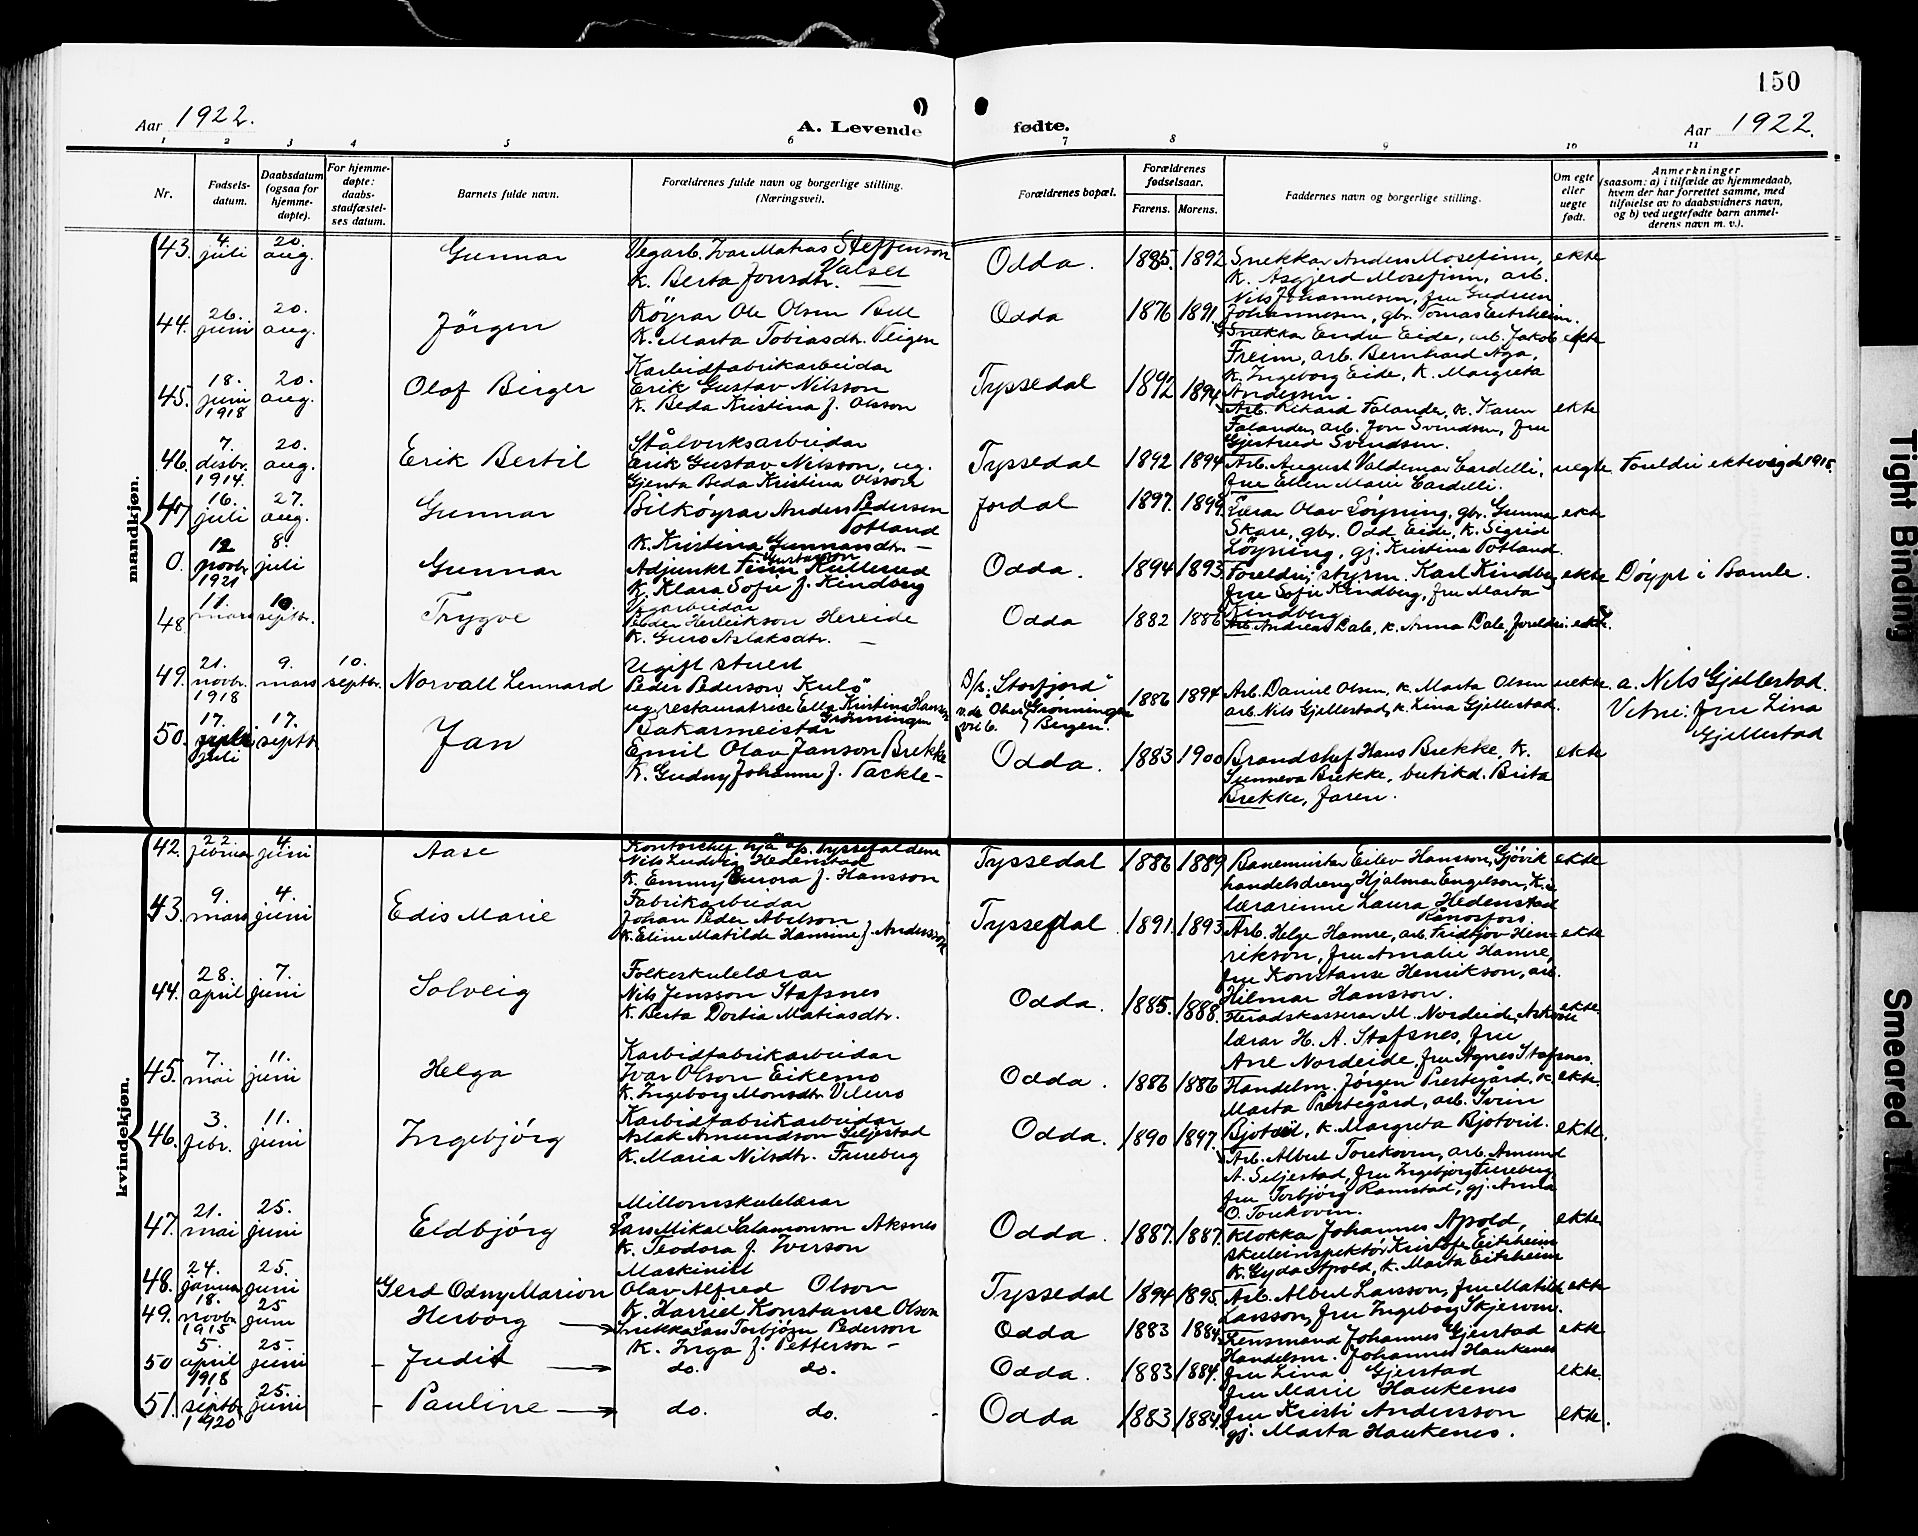 150
Aar 1922.
A. Levende
fødte.
Aar 1922.
1 2 3 4 5 6 7 8 9 10 11
Nr.
Fødsels-
datum.
Daabsdatum
(ogsaa for
hjemme-
døpte).
For hjemme-
døpte:
daabs-
stadfæstel-
ses datum.
Barnets fulde navn.
Forældrenes fulde navn og borgerlige stilling.
(Næringsvei).
Forældrenes bopæl.
Forældrenes
fødselsaar.
Farens. Morens.
Faddernes navn og borgerlige stilling.
Om egte
eller
uegte
født.
Anmerkninger
(saasom: a) i tilfælde av hjemmedaab,
hvem der har forrettet samme, med
tilføielse av to daabsvidners navn,
og b) ved uegtefødte barn anmel-
derens navn m. v.).
mandkjøn.
43. 4. juli 20. aug. Gunnar
Vegarb. Ivar Matias Steffenson
Valset
K. Berta Jonsdtr.
Odda. 1885. 1892
Snekkar Anders Mosefinn,
K. Asgjerd Mosefinn, arb.
Nils Johannesen, fru Gudrun
Johannesen, gbr. Tomas Eitrheim.
ekte
44. 26. juni 20. aug. Jörgen
Köyrar Ole Olsen Bell
K. Marta Tobiasdtr. Teigen
Odda 1876 1891
Snekkar Endre Eide, arb. Jakob
Freim, arb. Bernhard Aga,
K. Ingeborg Eide, K. Margreta
Andersen.
ekte
45. 18. juni 1918 20. aug. Olaf Birger
Karbidfabrikarbeidar
Erik Gustav Nilsson
K. Beda Kristina f. Olsson
Tyssedal 1892 1894
Arb. Rikard Falander, K. Karen
Falander, arb. Jon Svendsen, fru
Gjertrud Svendsen.
ekte
46. 7. desbr. 1914. 20. aug. Erik Bertil
Stålverksarbeidar
Erik Gustav Nilsson, ug.
Gjenta Beda Kristina Olsson
Tyssedal 1892 1894
Arb. August Valdemar Cardelli,
fru Ellen Marie Cardelli.
uegte Foreldri ektevigde 1915.
47 16. juli 27. aug. Gunnar
Bilköyrar Anders Pedersen
Totland
K. Kristina Gunnarsdtr. —
Jordal 1897. 1899.
Lærar Olav Löyning, gbr. Gunnar
Skare, gbr. Odd Eide, K. Sigrid
Löyning, gj. Kristina Totland.
ekte
0. 12 novbr. 1921 8. juli Gunnar
Adjunkt Finn Kullerud
K. Klara Sofie f. Kindberg
Odda. 1894 1893.
Foreldri, styrm. Karl Kindberg
fru Sofie Kindberg, fru Marta
Kindberg
ekte Döypt i Bamle.
48 11. mars 10. septbr. Trygve
Vegarbeidar
Peder Herleikson Hereide
K. Guro Aslaksdtr. —
Odda 1882 1886
Arb. Andreas Dale, K. Anna Dale, foreldri.
ekte.
49. 21. novbr. 1918 9. mars 10. septbr. Norvall Lennard
Ugift stuert
Peder Pederson Kulö
ug. restauratrice Ella Kristina Hansen
Grönningen
D/s. "Storfjord"
Bergen.
1886 1894
Arb. Daniel Olsen, K. Marta Olsen
arb. Nils Gjellestad, K. Lina Gjellestad.
uekte
a. Nils Gjellestad.
Vitne: fru Lina
Gjellestad
50. 17. juli 17. septbr. Jan
Bakarmeistar
Emil Olav Janson Brekke
K. Gudny Johanne f. Tackle—
Odda. 1883 1900
Brandchef Hans Brekke, K.
Sunneva Brekke, butikd. Brita
Brekke, faren.
ekte
kvindekjøn.
42. 22. februar 4. juni Aase
Kontorchef hjå A/S. Tyssefaldene
Nils Ludvig Hedenstad
K. Emmy Aurora f. Hansson
Tyssedal 1886 1889
Banemester Eilev Hansson, Gjövik
handelsdreng Hjalmar Engelson, K.
lærarinne Laura Hedenstad
Rånosfoss.
ekte
43. 9. mars 4. juni Edis Marie
Fabrikarbeidar
Johan Peder Abelson
K. Eline Matilde Hansine f. Andersson
Tyssedal. 1891. 1893.
Arb. Helge Hamre, arb. Fridtjov Hen-
rikson, fru Amalie Hamre,
fru Konstanse Henrikson, arb.
Hilmar Hansson.
ekte
44. 28. april 7. juni Solveig
Folkeskulelærar
Nils Jensson Stafsnes
K. Berta Dortia Matiasdtr.
Odda. 1885. 1888.
Heradskasserar M. Nordeide, Askvoll
lærar H. A. Stafsnes, fru
Ane Nordeide, fru Agnes Stafsnes.
ekte
45. 7. mai 11. juni Helga
Karbidfabrikarbeidar
Ivar Olson Eikemo
K. Ingeborg Monsdtr. Vikers
Odda. 1886 1886
Handelsm. Jörgen Prestegård, K.
Marta Prestegård, arb. Sven
Bjotveit, K. Margreta Bjotveit.
ekte.
46. 3. febr. 11. juni Ingebjörg
Karbidfabrikarbeidar
Aslak Amundson Seljestad
K. Maria Nilsdtr. Fureberg
Odda. 1890 1897.
Arb. Albert Torekoven, arb. Amund
A. Seljestad, fru Ingebjörg Fureberg
fru Torbjörg Ramstad, gj. Anna
O. Torekoven.
ekte.
47. 21. mai 25. juni Eldbjörg
Millomskulelærar
Lars Mikal Salamonson Aksnes
K. Teodora f. Iverson
Odda. 1887. 1887.
Klokkar Johannes Apold,
skuleinspektör Kristofer Eitrheim
K. Gyda Apold, K. Marta Eitrheim
ekte
48. 24. januar 25. juni Gerd Odny Marion
Maskinist
Olav Alfred Olson
K. Harriet Konstanse Olson
Tyssedal 1894 1895.
Arb. Albert Larsson, fru Matilde
Larsson, fru Ingeborg Skjerven.
ekte
49. 18. novbr. 1915 25 juni Herborg →
Snekkar Lars Torbjörn Pederson
K. Inga f. Petterson —
Odda 1883 1884.
Lensmand Johannes Gjerstad
Handelsm. Johannes Haukenes
ekte
50 5. april 1918 25. juni - Judit →
do. do.
Odda. 1883 1884.
fru Lina Gjerstad
fru Marie Haukenes
ekte.
51. 1. septbr. 1920 25. juni - Pauline →
do. do.
Odda 1883 1884.
fru Kristi Andersson
gj. Marta Haukenes.
ekte.
Tight Binding
Smeared